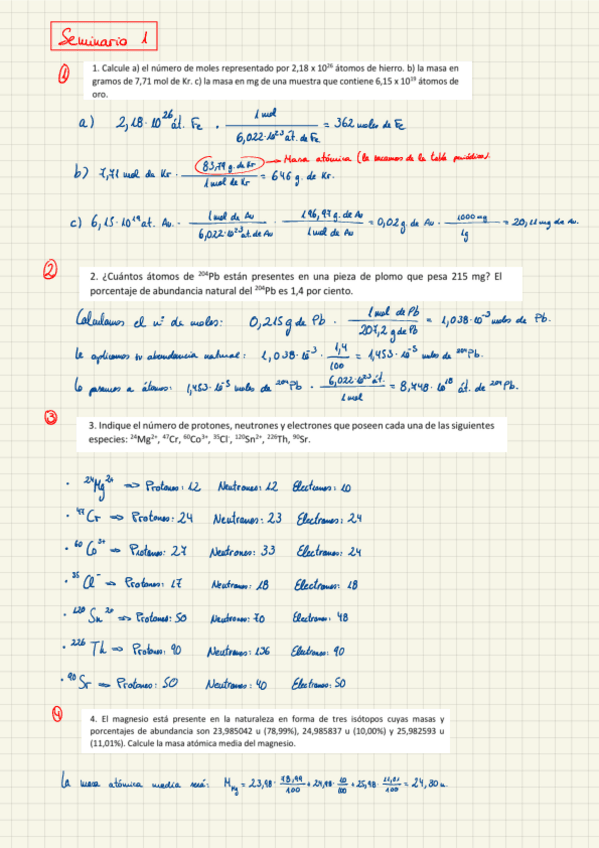 Seminario 1
① 1. Calcule a) el número de moles representado por 2,18 x 10²⁶ átomos de hierro. b) la masa en
gramos de 7,71 mol de Kr. c) la masa en mg de una muestra que contiene 6,15 x 10¹⁹ átomos de
oro.
a) 2,18 · 10²⁶ át. Fe · 1 mol / 6,022·10²³ át. de Fe = 362 moles de Fe
b) 7,71 mol de Kr · 83,79 g. de Kr / 1 mol de Kr = 646 g. de Kr. → Masa atómica (la sacamos de la tabla periódica).
c) 6,15 · 10¹⁹ at. Au · 1 mol de Au / 6,022·10²³ at. de Au · 196,97 g. de Au / 1 mol de Au = 0,02 g. de Au · 1000 mg / 1g = 20,11 mg de Au.
② 2. ¿Cuántos átomos de ²⁰⁴Pb están presentes en una pieza de plomo que pesa 215 mg? El
porcentaje de abundancia natural del ²⁰⁴Pb es 1,4 por ciento.
Calculamos el nº de moles: 0,215 g de Pb · 1 mol de Pb / 207,2 g de Pb = 1,038·10⁻³ moles de Pb.
Le aplicamos su abundancia natural: 1,038·10⁻³ · 1,4 / 100 = 1,453·10⁻⁵ moles de ²⁰⁴Pb.
Lo pasamos a átomos: 1,453·10⁻⁵ moles de ²⁰⁴Pb · 6,022·10²³ át. / 1 mol = 8,748·10¹⁸ át. de ²⁰⁴Pb.
③ 3. Indique el número de protones, neutrones y electrones que poseen cada una de las siguientes
especies: ²⁴Mg²⁺, ⁴⁷Cr, ⁶⁰Co³⁺, ³⁵Cl⁻, ¹²⁰Sn²⁺, ²²⁶Th, ⁹⁰Sr.
· ²⁴Mg²⁺ => Protones: 12 Neutrones: 12 Electrones: 10
· ⁴⁷Cr => Protones: 24 Neutrones: 23 Electrones: 24
· ⁶⁰Co³⁺ => Protones: 27 Neutrones: 33 Electrones: 24
· ³⁵Cl⁻ => Protones: 17 Neutrones: 18 Electrones: 18
· ¹²⁰Sn²⁺ => Protones: 50 Neutrones: 70 Electrones: 48
· ²²⁶Th => Protones: 90 Neutrones: 136 Electrones: 90
· ⁹⁰Sr => Protones: 50 Neutrones: 40 Electrones: 50
④ 4. El magnesio está presente en la naturaleza en forma de tres isótopos cuyas masas y
porcentajes de abundancia son 23,985042 u (78,99%), 24,985837 u (10,00%) y 25,982593 u
(11,01%). Calcule la masa atómica media del magnesio.
La masa atómica media será: M Mg = 23,98 · 78,99 / 100 + 24,98 · 10 / 100 + 25,98 · 11,01 / 100 = 24,30 u.